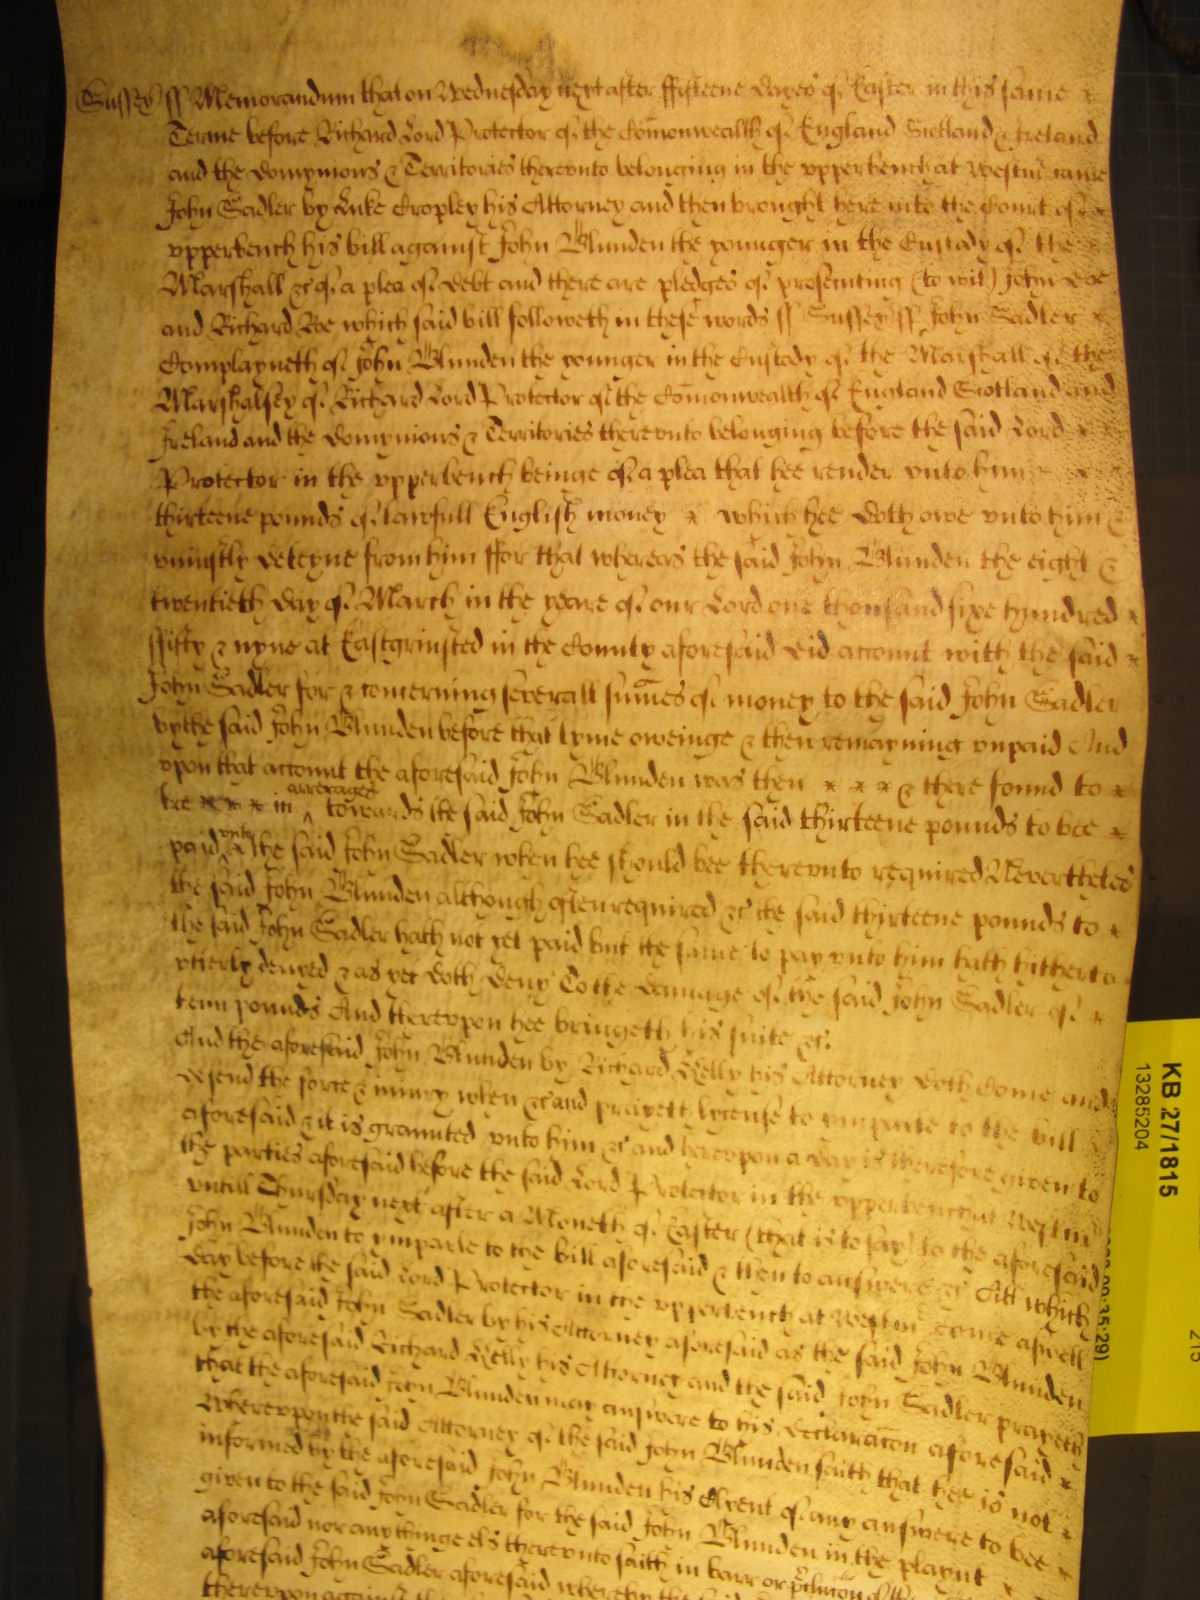 Sussex ss Memorandum that on Wednesday next after ffifteene dayes of Easter in this same
Terme before Richard Lord Protector of the Comonwealth of England Scotland & Ireland
and the domynions & Territories therevnto belonging in the vpperbench at Westm came
John Sadler by Luke Cropley his Attorney and then brought here into the Court of
vpperbench his bill against John Blunden the younger in the Custody of the
Marshall &c of a plea of debt and there are pledges of prosecuting (to wit) John Doe
and Richard Roe which said bill followeth in these words ss Sussex ss John Sadler
Complayneth of John Blunden the younger in the Custody of the Marshall of the
Marshalsey of Richard Lord Protector of the Comonwealth of England Scotland and
Ireland and the domynions & Territories therevnto belonging before the said Lord
Protector in the vpperbench beinge of a plea that hee render vnto him
thirteene pounds of lawfull English money which hee doth owe vnto him &
vniustly deteyne from him ffor that whereas the said John Blunden the eight &
twentieth day of March in the yeare of our Lord one thousand sixe hundred
ffifty & nyne at Eastgrinsted in the County aforesaid did account with the said
John Sadler for & concerning severall sumes of money to the said John Sadler
by the said John Blunden before that tyme oweinge & then remayning vnpaid And
vpon that account the aforesaid John Blunden was then & there found to
bee in arrerages towards the said John Sadler in the said thirteene pounds to bee
paid vnto the said John Sadler when hee should bee therevnto required Neverthelesse
the said John Blunden although often required &c the said thirteene pounds to
the said John Sadler hath not yet paid but the same to pay vnto him hath hitherto
vtterly denyed & as yet doth deny To the damage of the said John Sadler of
tenn pounds And therevpon hee bringeth his suite &c.
And the aforesaid John Blunden by Richard Kelly his Attorney doth come and
defend the force & iniury when &c and prayeth lycense to imparle to the bill
aforesaid & it is graunted vnto him &c and herevpon a day is therefore given to
the parties aforesaid before the said Lord Protector in the vpperbench at Westm
vntill Thursday next after a Moneth of Easter (that is to say) to the aforesaid
John Blunden to ymparle to the bill aforesaid & then to answere &c Att which
day before the said Lord Protector in the vpperbench at Westm come aswell
the aforesaid John Sadler by his Attorney aforesaid as the said John Blunden
by the aforesaid Richard Kelly his Attorney and the said John Sadler prayeth
that the aforesaid John Blunden may answere to his declaracon aforesaid
Wherevpon the said Attorney of the said John Blunden saith that hee is not
informed by the aforesaid John Blunden his Clyent of any answere to bee
given to the said John Sadler for the said John Blunden in the playnt
aforesaid nor any thinge els therevnto saith in barr or
aforesaid John Sadler aforesaid whereby the said
therevpon against the
KB 27/1815
13285204